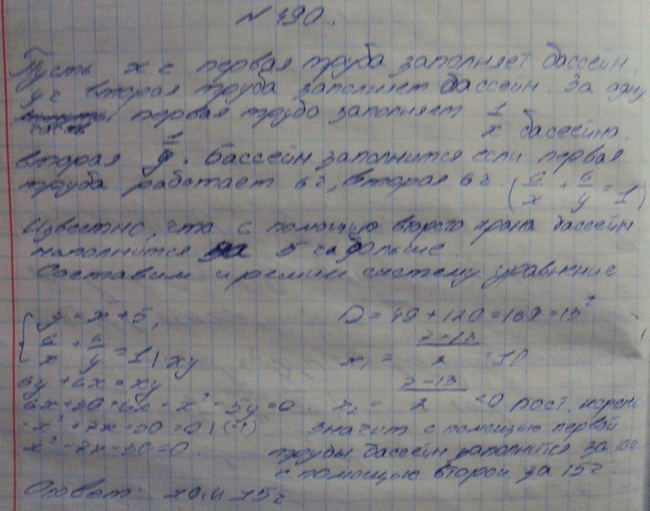 N 490.
Пусть x ч первая труба заполняет бассейн.
y ч вторая труба заполняет бассейн. За одну
первая труба заполняет 1/x бассейна,
вторая 1/y. Бассейн заполнится если первая
труба работает 6 ч, вторая 6 ч. (6/x + 6/y = 1)
Известно, что с помощью второго крана бассейн
наполнится на 5 ч дольше.
Составим и решим систему уравнение
{ y = x + 5,
6/x + 6/y = 1 | · xy
6y + 6x = xy
6x + 30 + 6x - x² - 5x = 0
-x² + 7x - 30 = 0 | (-1)
x² - 7x - 30 = 0.
D = 49 + 120 = 169 = 13²
x₁ = (7+13)/2 = 10
x₂ = (7-13)/2 < 0 пост. корень
значит с помощью первой
трубы бассейн заполнится за 10 ч
с помощью второй за 15 ч
Ответ: 10 и 15 ч